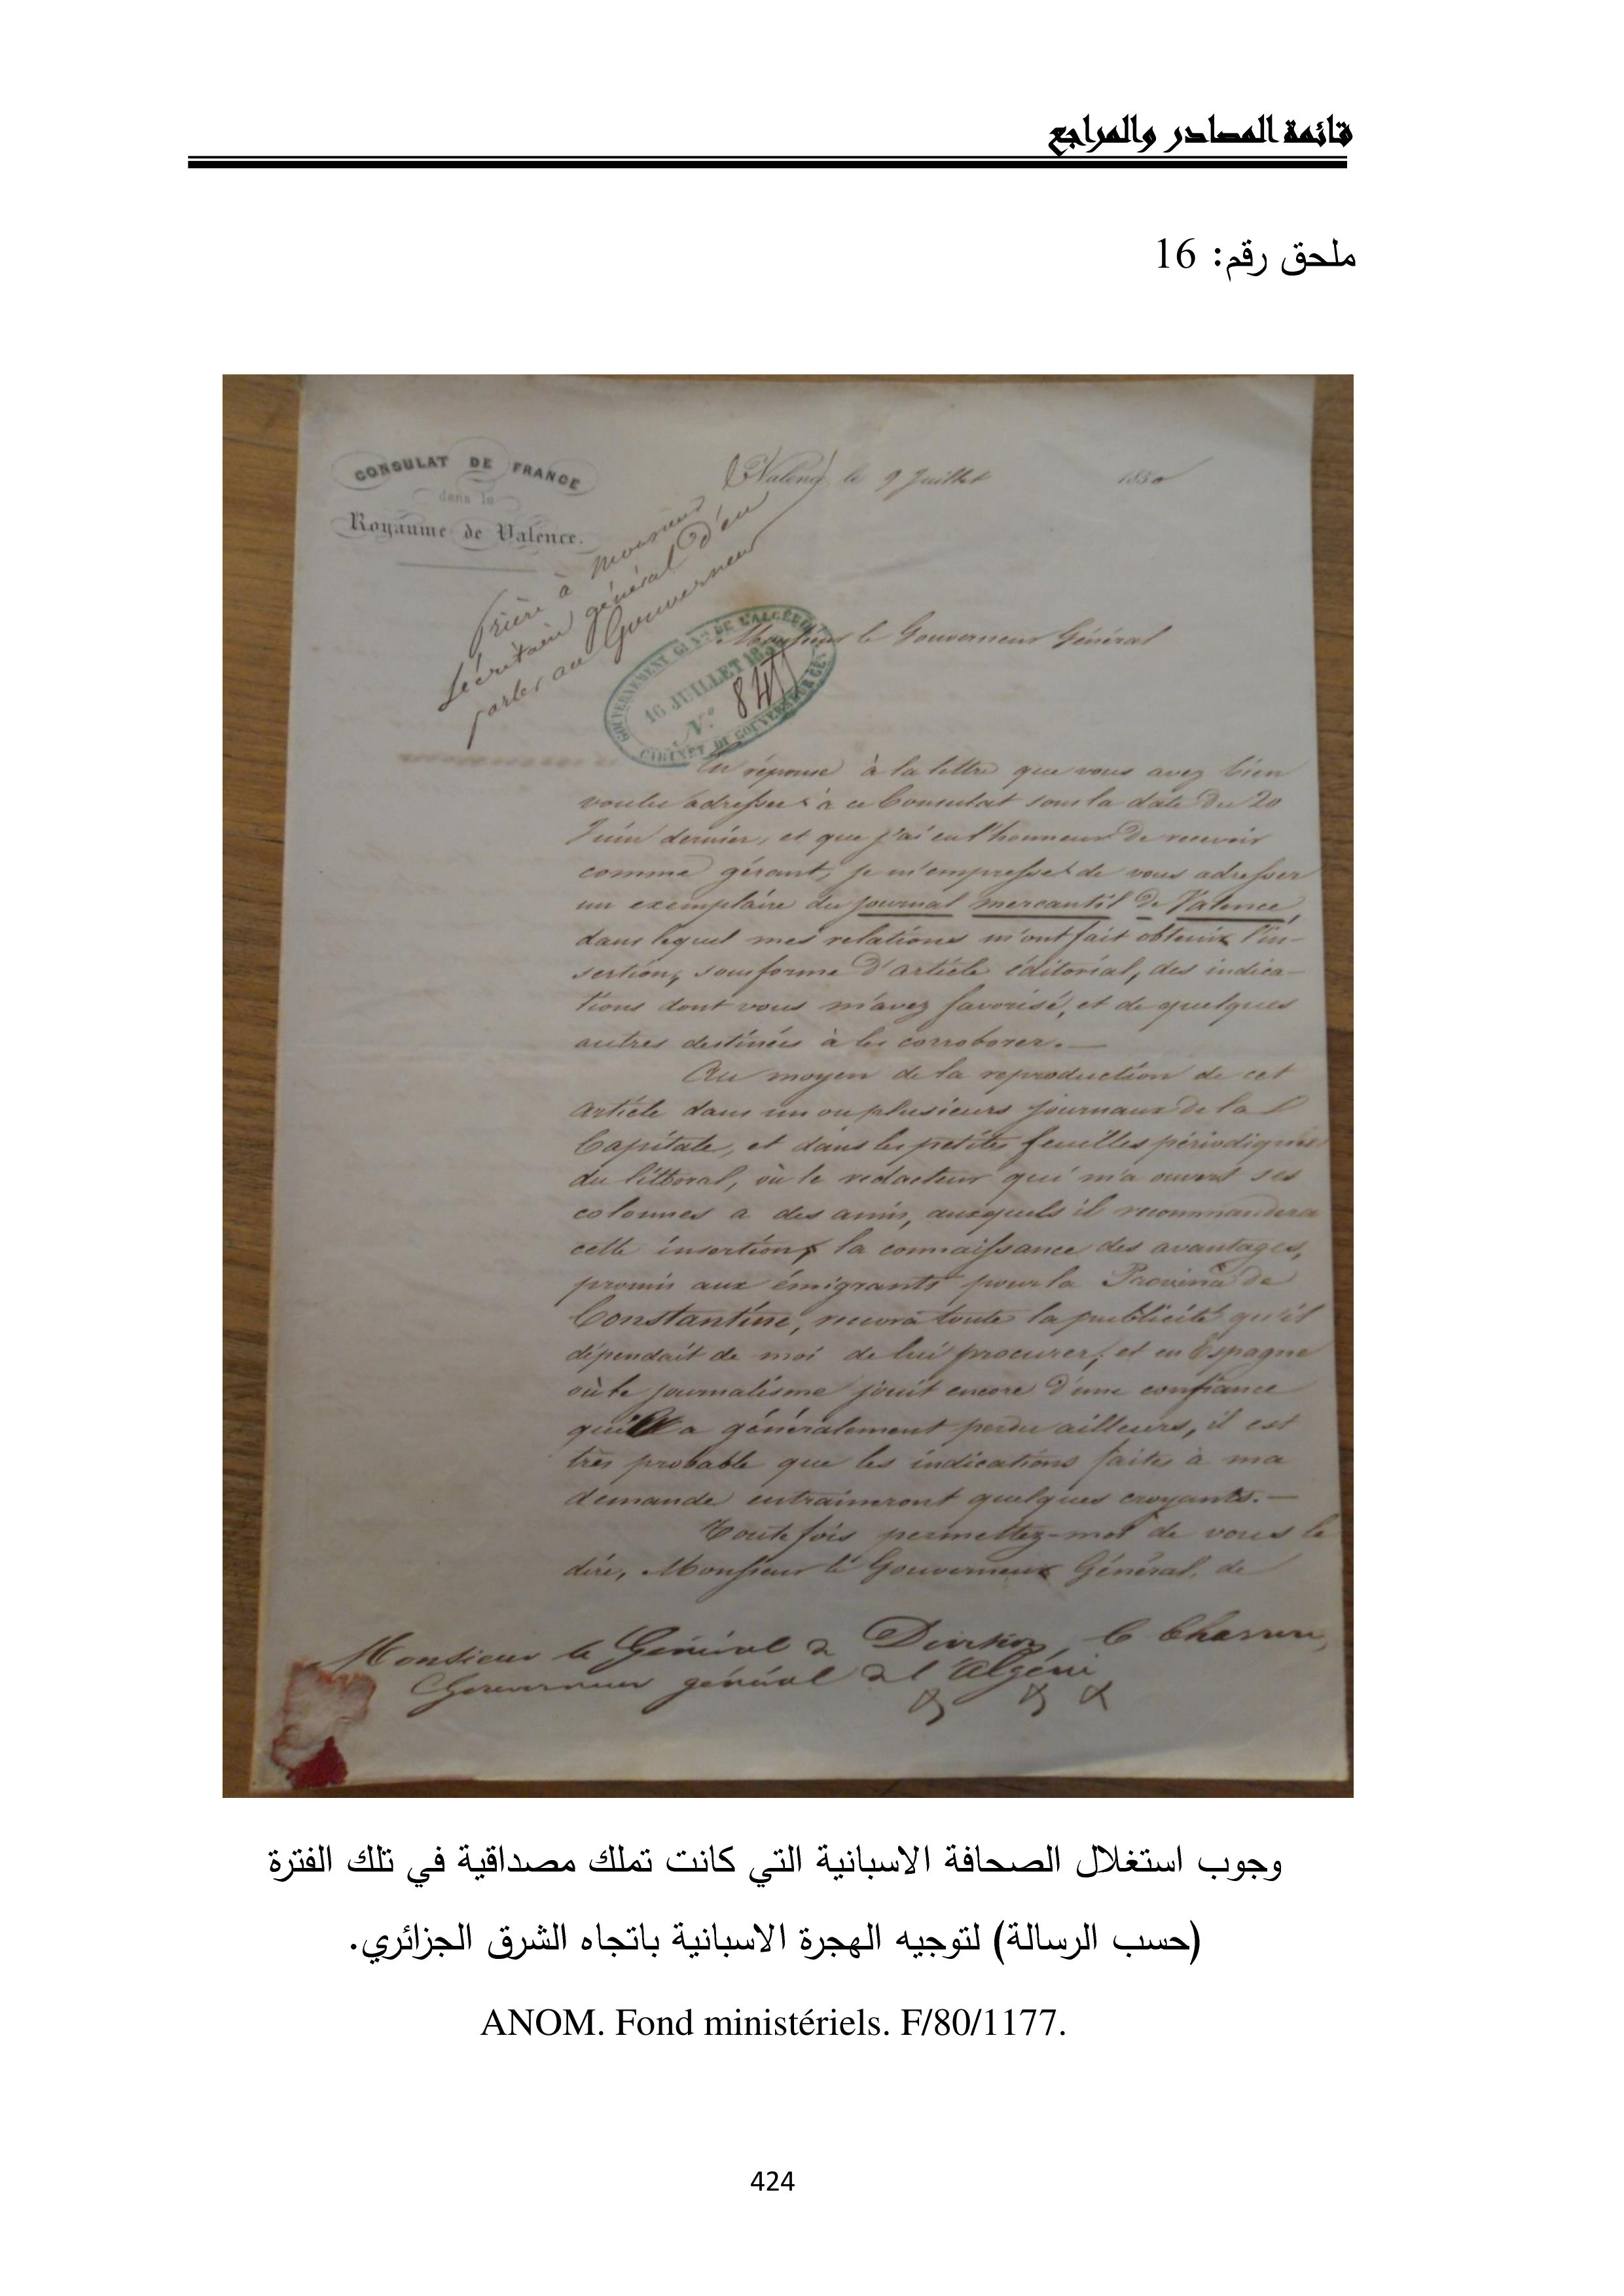 قائمة المصادر والمراجع
ملحق رقم: 16
CONSULAT DE FRANCE
dans le
Royaume de Valence.
Valence, le 9 Juillet 1850
Prière à Monsieur
le Secrétaire général d'en
parler au Gouverneur
GOUVERNEMENT GÉNÉRAL DE L'ALGÉRIE
16 JUILLET 1850
N.°
CABINET DU GOUVERNEUR GÉ
Monsieur le Gouverneur Général
En réponse à la lettre que vous avez bien
voulu adresser à ce Consulat sous la date du 20
Juin dernier, et que j'ai eu l'honneur de recevoir
comme gérant, je m'empresse de vous adresser
un exemplaire du journal mercantil de Valence,
dans lequel mes relations m'ont fait obtenir l'in-
sertion, sous forme d'article éditorial, des indica-
tions dont vous m'avez favorisé, et de quelques
autres destinées à les corroborer. —
Au moyen de la reproduction de cet
article dans un ou plusieurs journaux de la
Capitale, et dans les petites feuilles périodiques
du littoral, où le rédacteur qui m'a ouvert ses
colonnes a des amis, auxquels il recommandera
cette insertion, la connaissance des avantages,
promis aux émigrants pour la Province de
Constantine, recevra toute la publicité qu'il
dépendait de moi de lui procurer; et en Espagne
où le journalisme jouit encore d'une confiance
qu'il a généralement perdu ailleurs, il est
très probable que les indications faites à ma
demande entraineront quelques croyants. —
Toutefois permettez-moi de vous le
dire, Monsieur le Gouverneur Général, de
Monsieur le Général de Division
Gouverneur général de l'Algérie
وجوب استغلال الصحافة الاسبانية التي كانت تملك مصداقية في تلك الفترة
(حسب الرسالة) لتوجيه الهجرة الاسبانية باتجاه الشرق الجزائري.
ANOM. Fond ministériels. F/80/1177.
424